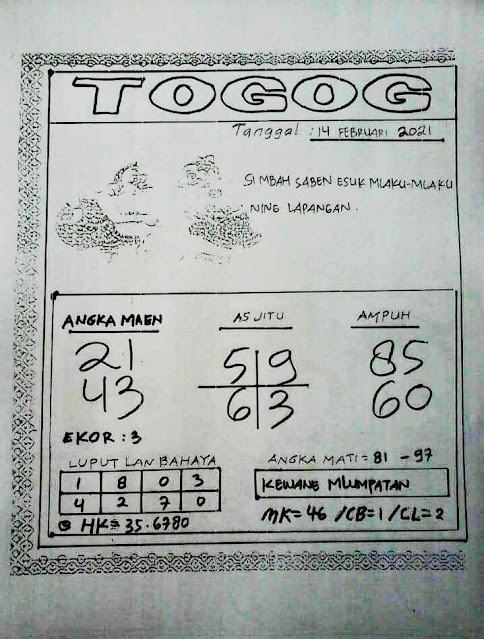 TOGOG
Tanggal : 14 FEBRUARI 2021
SIMBAH SABEN ESUK MLAKU-MLAKU
NING LAPANGAN.
ANGKA MAEN
21
43
EKOR : 3
AS JITU
5 9
6 3
AMPUH
85
60
LUPUT LAN BAHAYA
1 8 0 3
4 2 7 0
HK= 35.6780
ANGKA MATI = 81 - 97
KEWANE MLUMPATAN
MK= 46 /CB=1 /CL=2